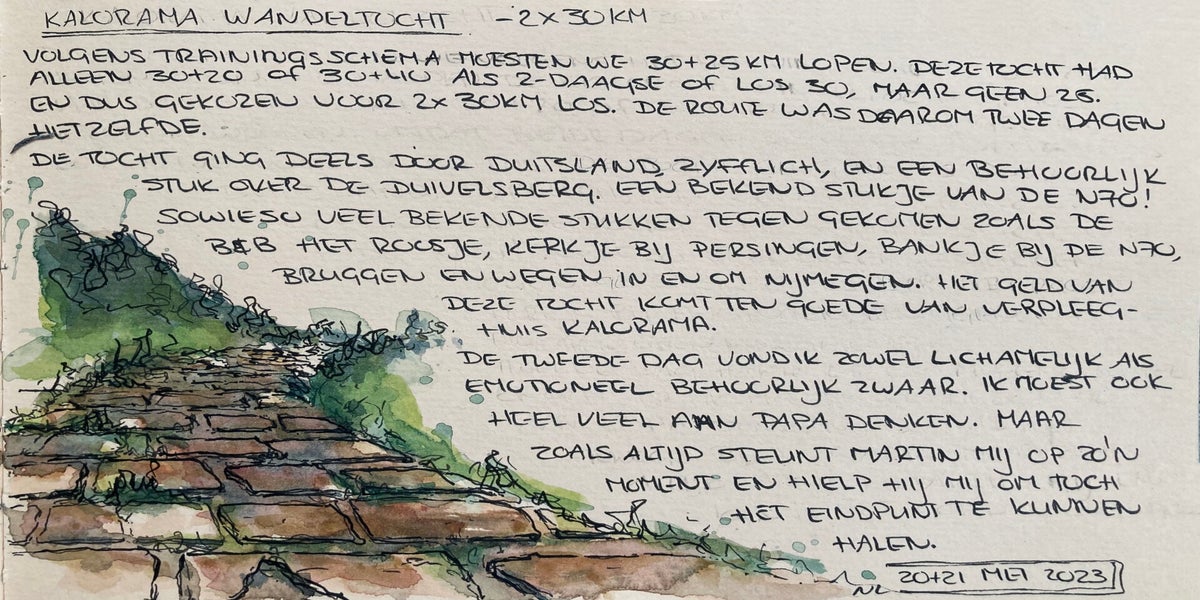 KALORAMA WANDELTOCHT - 2x30KM
VOLGENS TRAININGSSCHEMA MOESTEN WE 30+25KM LOPEN. DEZE TOCHT HAD
ALLEEN 30+20 OF 30+40 ALS 2-DAAGSE OF LOS 30, MAAR GEEN 25.
EN DUS GEKOZEN VOOR 2x30KM LOS. DE ROUTE WAS DAAROM TWEE DAGEN
HETZELFDE.
DE TOCHT GING DEELS DOOR DUITSLAND, ZYFFLICH, EN EEN BEHOORLIJK
STUK OVER DE DUIVELSBERG. EEN BEKEND STUKJE VAN DE N70!
SOWIESO VEEL BEKENDE STUKKEN TEGEN GEKOMEN ZOALS DE
B&B HET ROOSJE, KERKJE BIJ PERSINGEN, BANKJE BIJ DE N70,
BRUGGEN EN WEGEN IN EN OM NIJMEGEN. HET GELD VAN
DEZE TOCHT KOMT TEN GOEDE VAN VERPLEEG-
HUIS KALORAMA.
DE TWEEDE DAG VOND IK ZOWEL LICHAMELIJK ALS
EMOTIONEEL BEHOORLIJK ZWAAR. IK MOEST OOK
HEEL VEEL AAN PAPA DENKEN. MAAR
ZOALS ALTIJD STEUNT MARTIN MIJ OP ZO'N
MOMENT EN HIELP HIJ MIJ OM TOCH
HET EINDPUNT TE KUNNEN
HALEN.
NL 20+21 MEI 2023